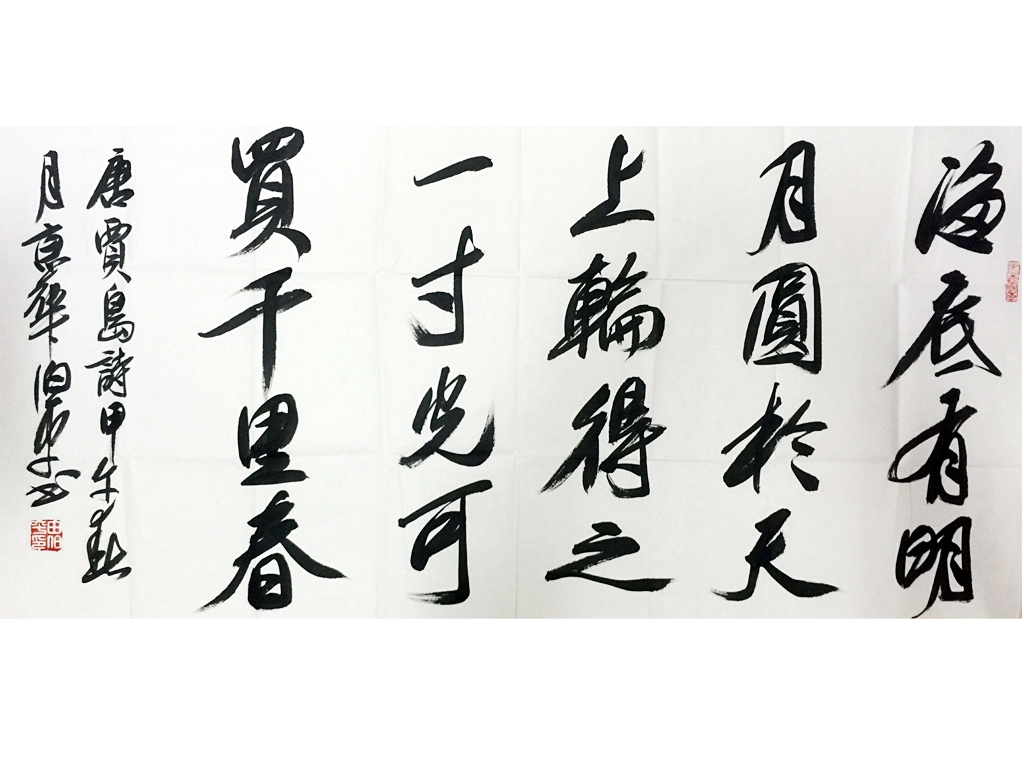 海底有明
月圓於天
上輪得之
一寸光可
買千里春
唐賈島詩甲午秋
月京華伯平书